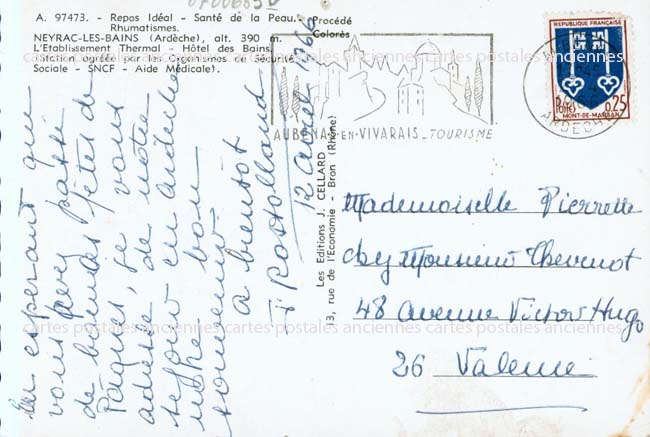 A. 97473. - Repos Idéal - Santé de la Peau.
Rhumatismes.
NEYRAC-LES-BAINS (Ardèche), alt. 390 m.
L'Etablissement Thermal - Hôtel des Bains
(Station agréée par les Organismes de Sécurité
Sociale - SNCF - Aide Médicale).
Procédé
Colorès
En espérant que
vous avez passé
de bonnes fêtes de
Pâques, je vous
adresse de notre
séjour en Ardèche
notre bon
souvenir
à bientôt
12 avril 1966
Les Editions J. CELLARD
13, rue de l'Economie - Bron (Rhône)
AUBENAS-EN-VIVARAIS_TOURISME
ARDECHE
REPUBLIQUE FRANÇAISE
POSTES 0,25
MONT-DE-MARSAN
Mademoiselle Pierrette
chez Monsieur Thevenot
48 avenue Victor Hugo
26 Valence
cartes postales anciennes cartes postales anciennes cartes postales anciennes
cartes postales anciennes cartes postales anciennes cartes postales anciennes